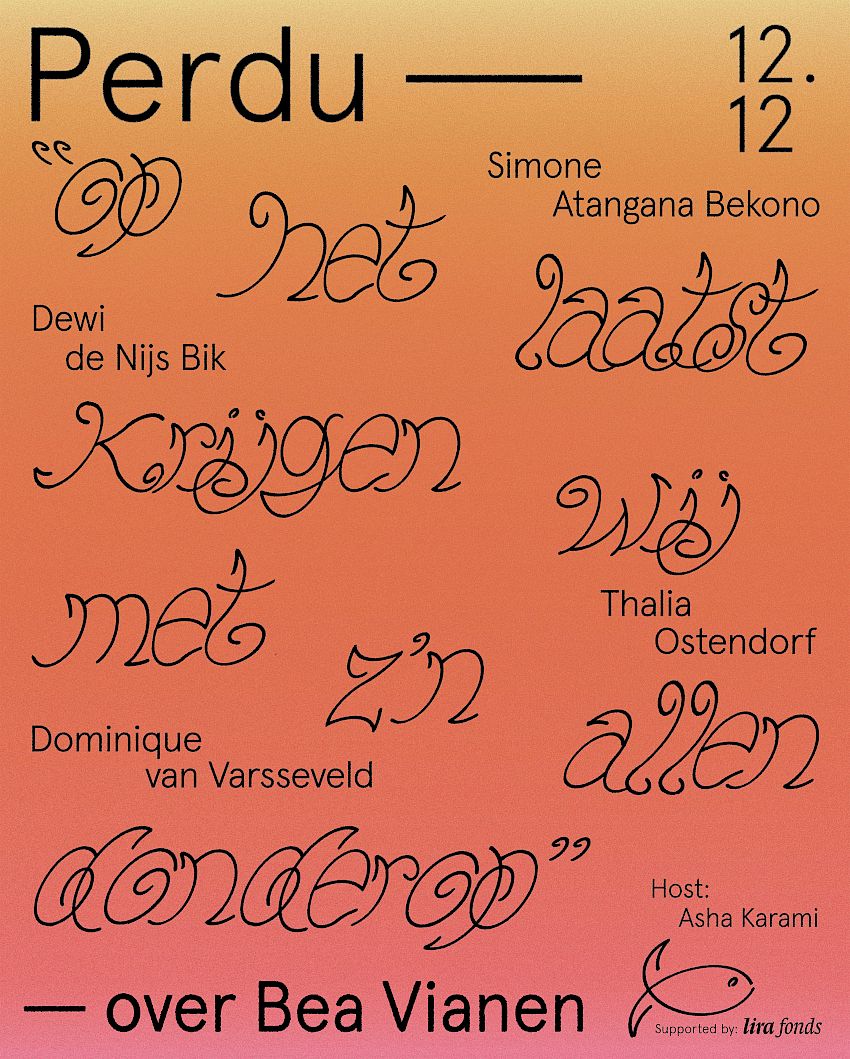 Perdu —
12.
12
“op
het
Simone
Atangana Bekono
laatst
Dewi
de Nijs Bik
Krijgen
wij
met
Thalia
Ostendorf
z’n
allen
Dominique
van Varsseveld
donderop”
Host:
Asha Karami
— over Bea Vianen
Supported by: lira fonds